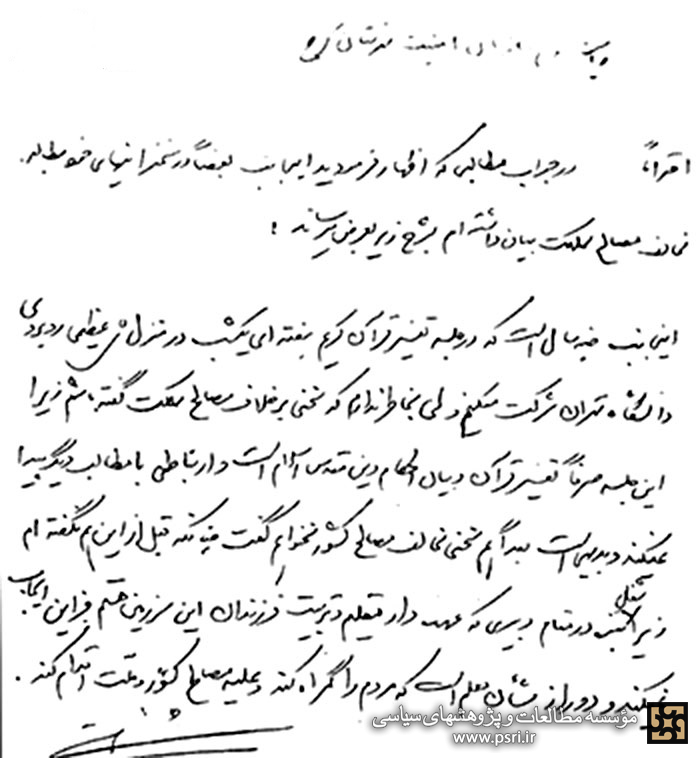 امنیت
احتراماً در جواب مطالبی که اظهار فرمودید اینجانب بعضاً در سخنرانیهای خود مطالب
مخالف مصالح مملکت بیان داشته ام بشرح زیر بعرض میرساند :
اینجانب چند سال است که در جلسه تفسیر قرآن کریم هفته ای یکشب در منزل
دانشگاه تهران شرکت میکنم ولی بخاطر ندارم که سخنی برخلاف مصالح مملکت گفته باشم زیرا
این جلسه صرفاً تفسیر قرآن و بیان احکام دین مقدس اسلام است و ارتباطی با مطالب دیگر پیدا
نمیکند و بدیهی است بعداً هم سخنی مخالف مصالح کشور نخواهم گفت چنانکه قبل از این هم نگفته ام
زیرا شغل در مقام دبیری که عهده دار تعلیم و تربیت فرزندان این سرزمین هستم جز این ایجاب
نمیکند و دور از شأن معلم است که مردم را گمراه کند و علیه مصالح کشور و ملت اقدام کند .
مؤسسه مطالعات و پژوهشهای سیاسی
www.psri.ir